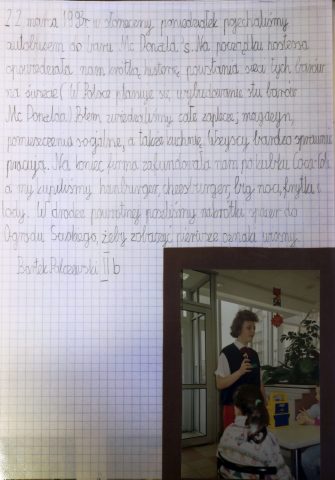 22 marca 1995r. w słoneczny poniedziałek pojechaliśmy
autobusem do baru Mc Donald's. Na początku hostessa
opowiedziała nam krótką historię powstania sieci tych barów
na świecie (W Polsce planuje się wybudowanie stu barów
Mc Donalda.) Potem zwiedziliśmy całe zaplecze, magazyn,
pomieszczenia socjalne, a także kuchnię. Wszyscy bardzo sprawnie
pracują. Na koniec firma zafundowała nam po kubku Coca-Coli
a my kupiliśmy hamburger, cheesburger, big maca, frytki i
lody. W drodze powrotnej poszliśmy na krótki spacer do
Ogrodu Saskiego, żeby zobaczyć pierwsze oznaki wiosny.
Bartek Palczewski II b